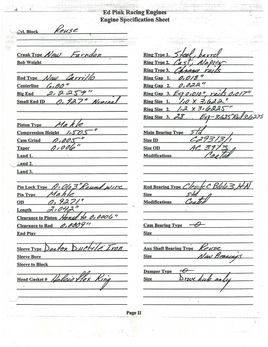 Ed Pink Racing Engines
Engine Specification Sheet
Cyl. Block Rouse
Crank Type New Farndon
Bob Weight
Rod Type New Carrillo
Centerline 6.00"
Big End 2.2259"
Small End ID 0.927" Nominal
Piston Type Mahle
Compression Height 1.505"
Cam Grind 0.005"
Taper 0.006"
Land 1.
Land 2.
Land 3.
Pin Lock Type 0.063 Round wire
Pin Type Mahle
OD 0.9271"
Length 2.042"
Clearance to Piston Honed to 0.0006"
Clearance to Rod 0.0009"
End Play
Sleeve Type Darton Ductile Iron
Sleeve Bore
Sleeve to Block
Head Gasket # Ring
Ring Type 1. Steel, barrel
Ring Type 2. Cast, Napier
Ring Type 3. Chrome rails
Ring Gap 1. 0.018"
Ring Gap 2. 0.022"
Ring Gap 3. rails 0.017"
Ring Size 1. 1.0 x 3.622"
Ring Size 2. 1.2 x 3.6225
Ring Size 3. 28
Main Bearing Type std
Size ID
Size OD
Modifications Coated
Rod Bearing Type
Size std
Modifications Coated
Cam Bearing Type
Size
Aux Shaft Bearing Type Rouse
Size New Bearings
Damper Type
Size Drive hub only
Page II